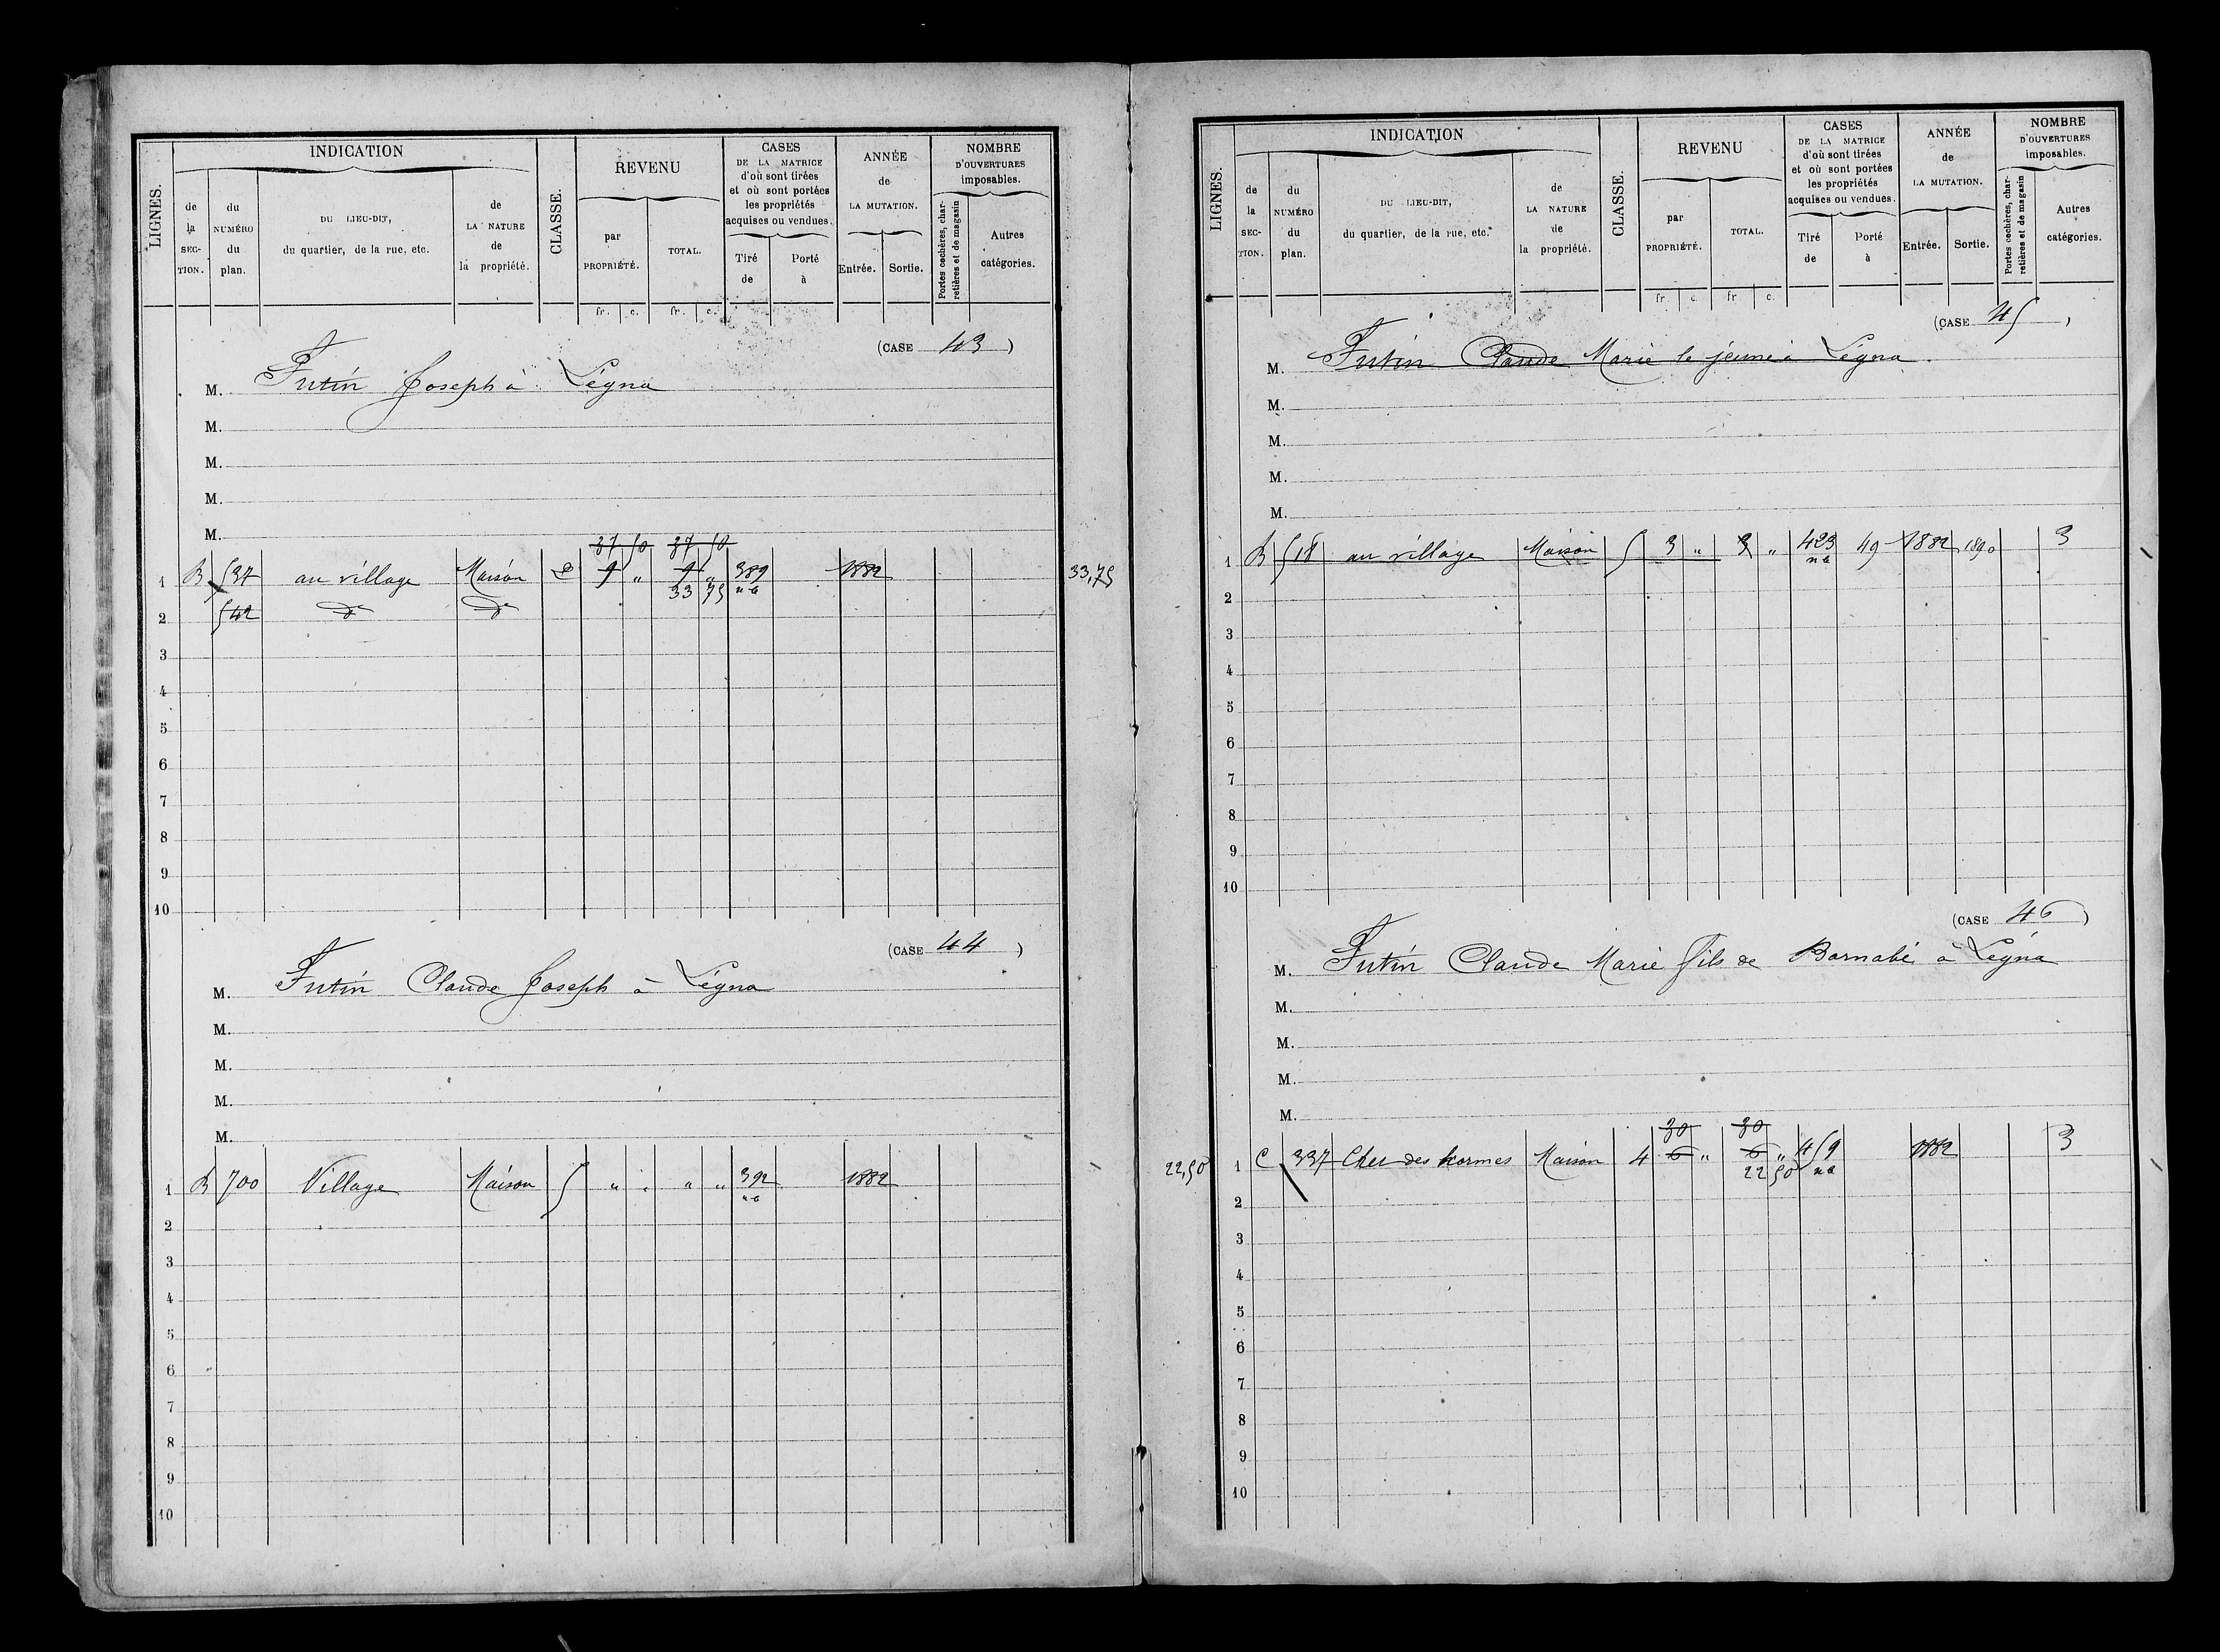 LIGNES.
INDICATION
de la SECTION.
du NUMÉRO du plan.
DU LIEU-DIT, du quartier, de la rue, etc.
de LA NATURE de la propriété.
CLASSE.
REVENU
par PROPRIÉTÉ.
TOTAL.
fr. c. fr. c.
CASES DE LA MATRICE d'où sont tirées et où sont portées les propriétés acquises ou vendues.
Tiré de
Porté à
ANNÉE de LA MUTATION.
Entrée. Sortie.
NOMBRE D'OUVERTURES imposables.
Portes cochères, charretières et de magasin
Autres catégories.
(CASE 43)
M. Futin Joseph à Légna
M.
M.
M.
M.
37 50 37 50
1 B 537 au village Maison 2 9 " 9 " 389 1882 33,75
33 75 n b
2 542 do do
3
4
5
6
7
8
9
10
(CASE 44)
M. Futin Claude Joseph à Légna
M.
M.
M.
M.
1 B 700 Village Maison 5 " " " " 392 1882
n b
2
3
4
5
6
7
8
9
10
LIGNES.
INDICATION
de la SECTION.
du NUMÉRO du plan.
DU LIEU-DIT, du quartier, de la rue, etc.
de LA NATURE de la propriété.
CLASSE.
REVENU
par PROPRIÉTÉ.
TOTAL.
fr. c. fr c.
CASES DE LA MATRICE d'où sont tirées et où sont portées les propriétés acquises ou vendues.
Tiré de
Porté à
ANNÉE de LA MUTATION.
Entrée. Sortie.
NOMBRE D'OUVERTURES imposables.
Portes cochères, charretières et de magasin
Autres catégories.
(CASE 45)
M. Futin Claude Marie le jeune à Légna
M.
M.
M.
M.
1 B 518 au village Maison 5 3 " 3 " 423 49 1882 1890 3
n b
2
3
4
5
6
7
8
9
10
(CASE 46)
M. Futin Claude Marie fils de Barnabé à Légna
M.
M.
M.
M.
30 30
22,50 1 C 337 Chez des hormes Maison 4 6 " 6 " 459 1882 3
22 50 n b
2
3
4
5
6
7
8
9
10